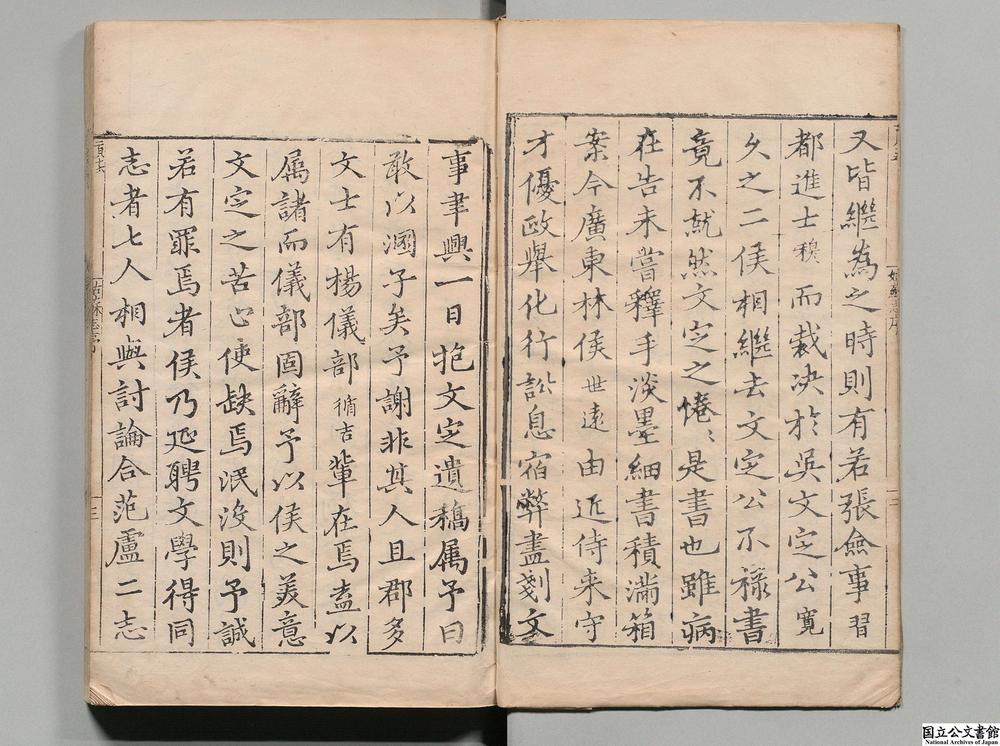 又皆繼為之時則有若張僉事習
都進士穆而裁决於吳文定公寬
久之二侯相繼去文定公不祿書
竟不就然文定之惓〻是書也雖病
在告未嘗釋手淡墨細書積滿箱
案今廣東林侯世遠由近侍来守
才優政舉化行訟息宿弊盡剗文
事聿興一日抱文定遺稿属予曰
敢以溷子矣予謝非其人且郡多
文士有楊儀部循吉軰在焉盍以
属諸而儀部固辭予以侯之美意
文定之苦心使缺焉泯没則予誠
若有罪焉者侯乃延聘文學得同
志者七人相與討論合范盧二志
国立公文書館
National Archives of Japan